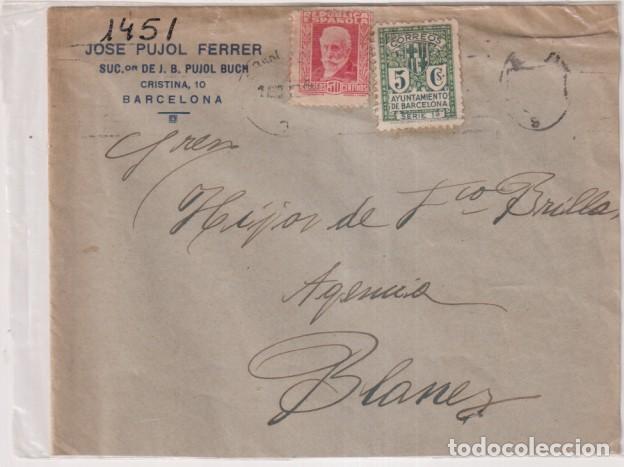 1451
JOSE PUJOL FERRER
SUC.OR DE J. B. PUJOL BUCH
CRISTINA, 10
BARCELONA
REPÚBLICA
ESPAÑOLA
30 CENTIMOS
CORREOS
5 Cs.
AYUNTAMIENTO
DE BARCELONA
SERIE
Sres
Hijos de Fco Brillas
Agencia
Blanes
todocoleccion.net